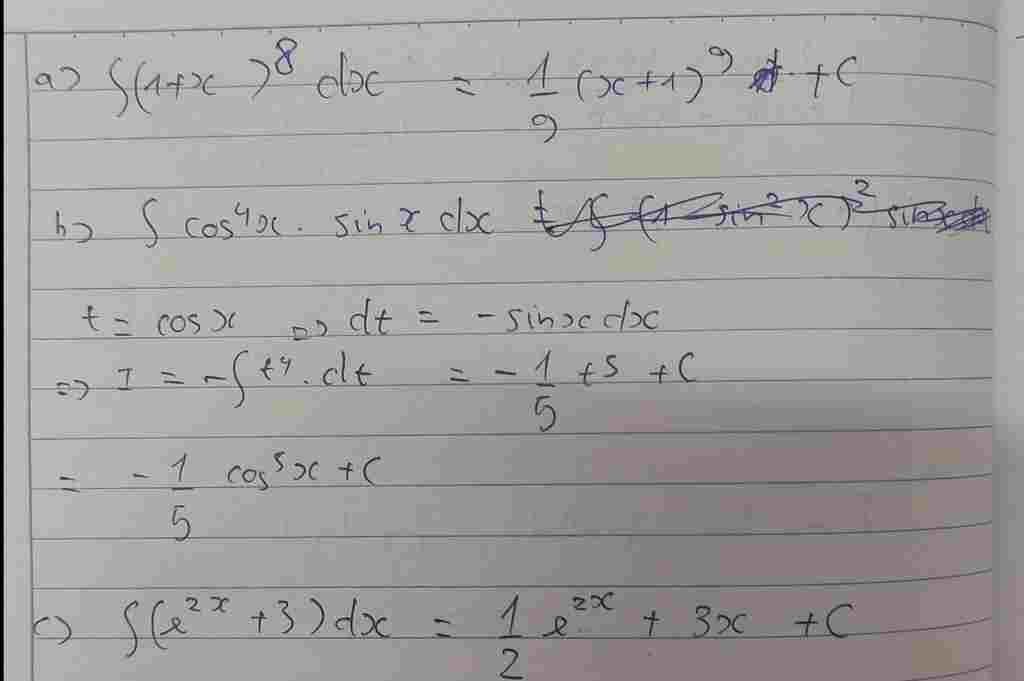 a) ∫(1+x)⁸ dx = 1/9 (x+1)⁹ + C
b) ∫ cos⁴x . sin x dx
t = cos x => dt = -sinx dx
=> I = -∫ t⁴ . dt = -1/5 t⁵ + C
= -1/5 cos⁵x + C
c) ∫(e²ˣ + 3) dx = 1/2 e²ˣ + 3x + C